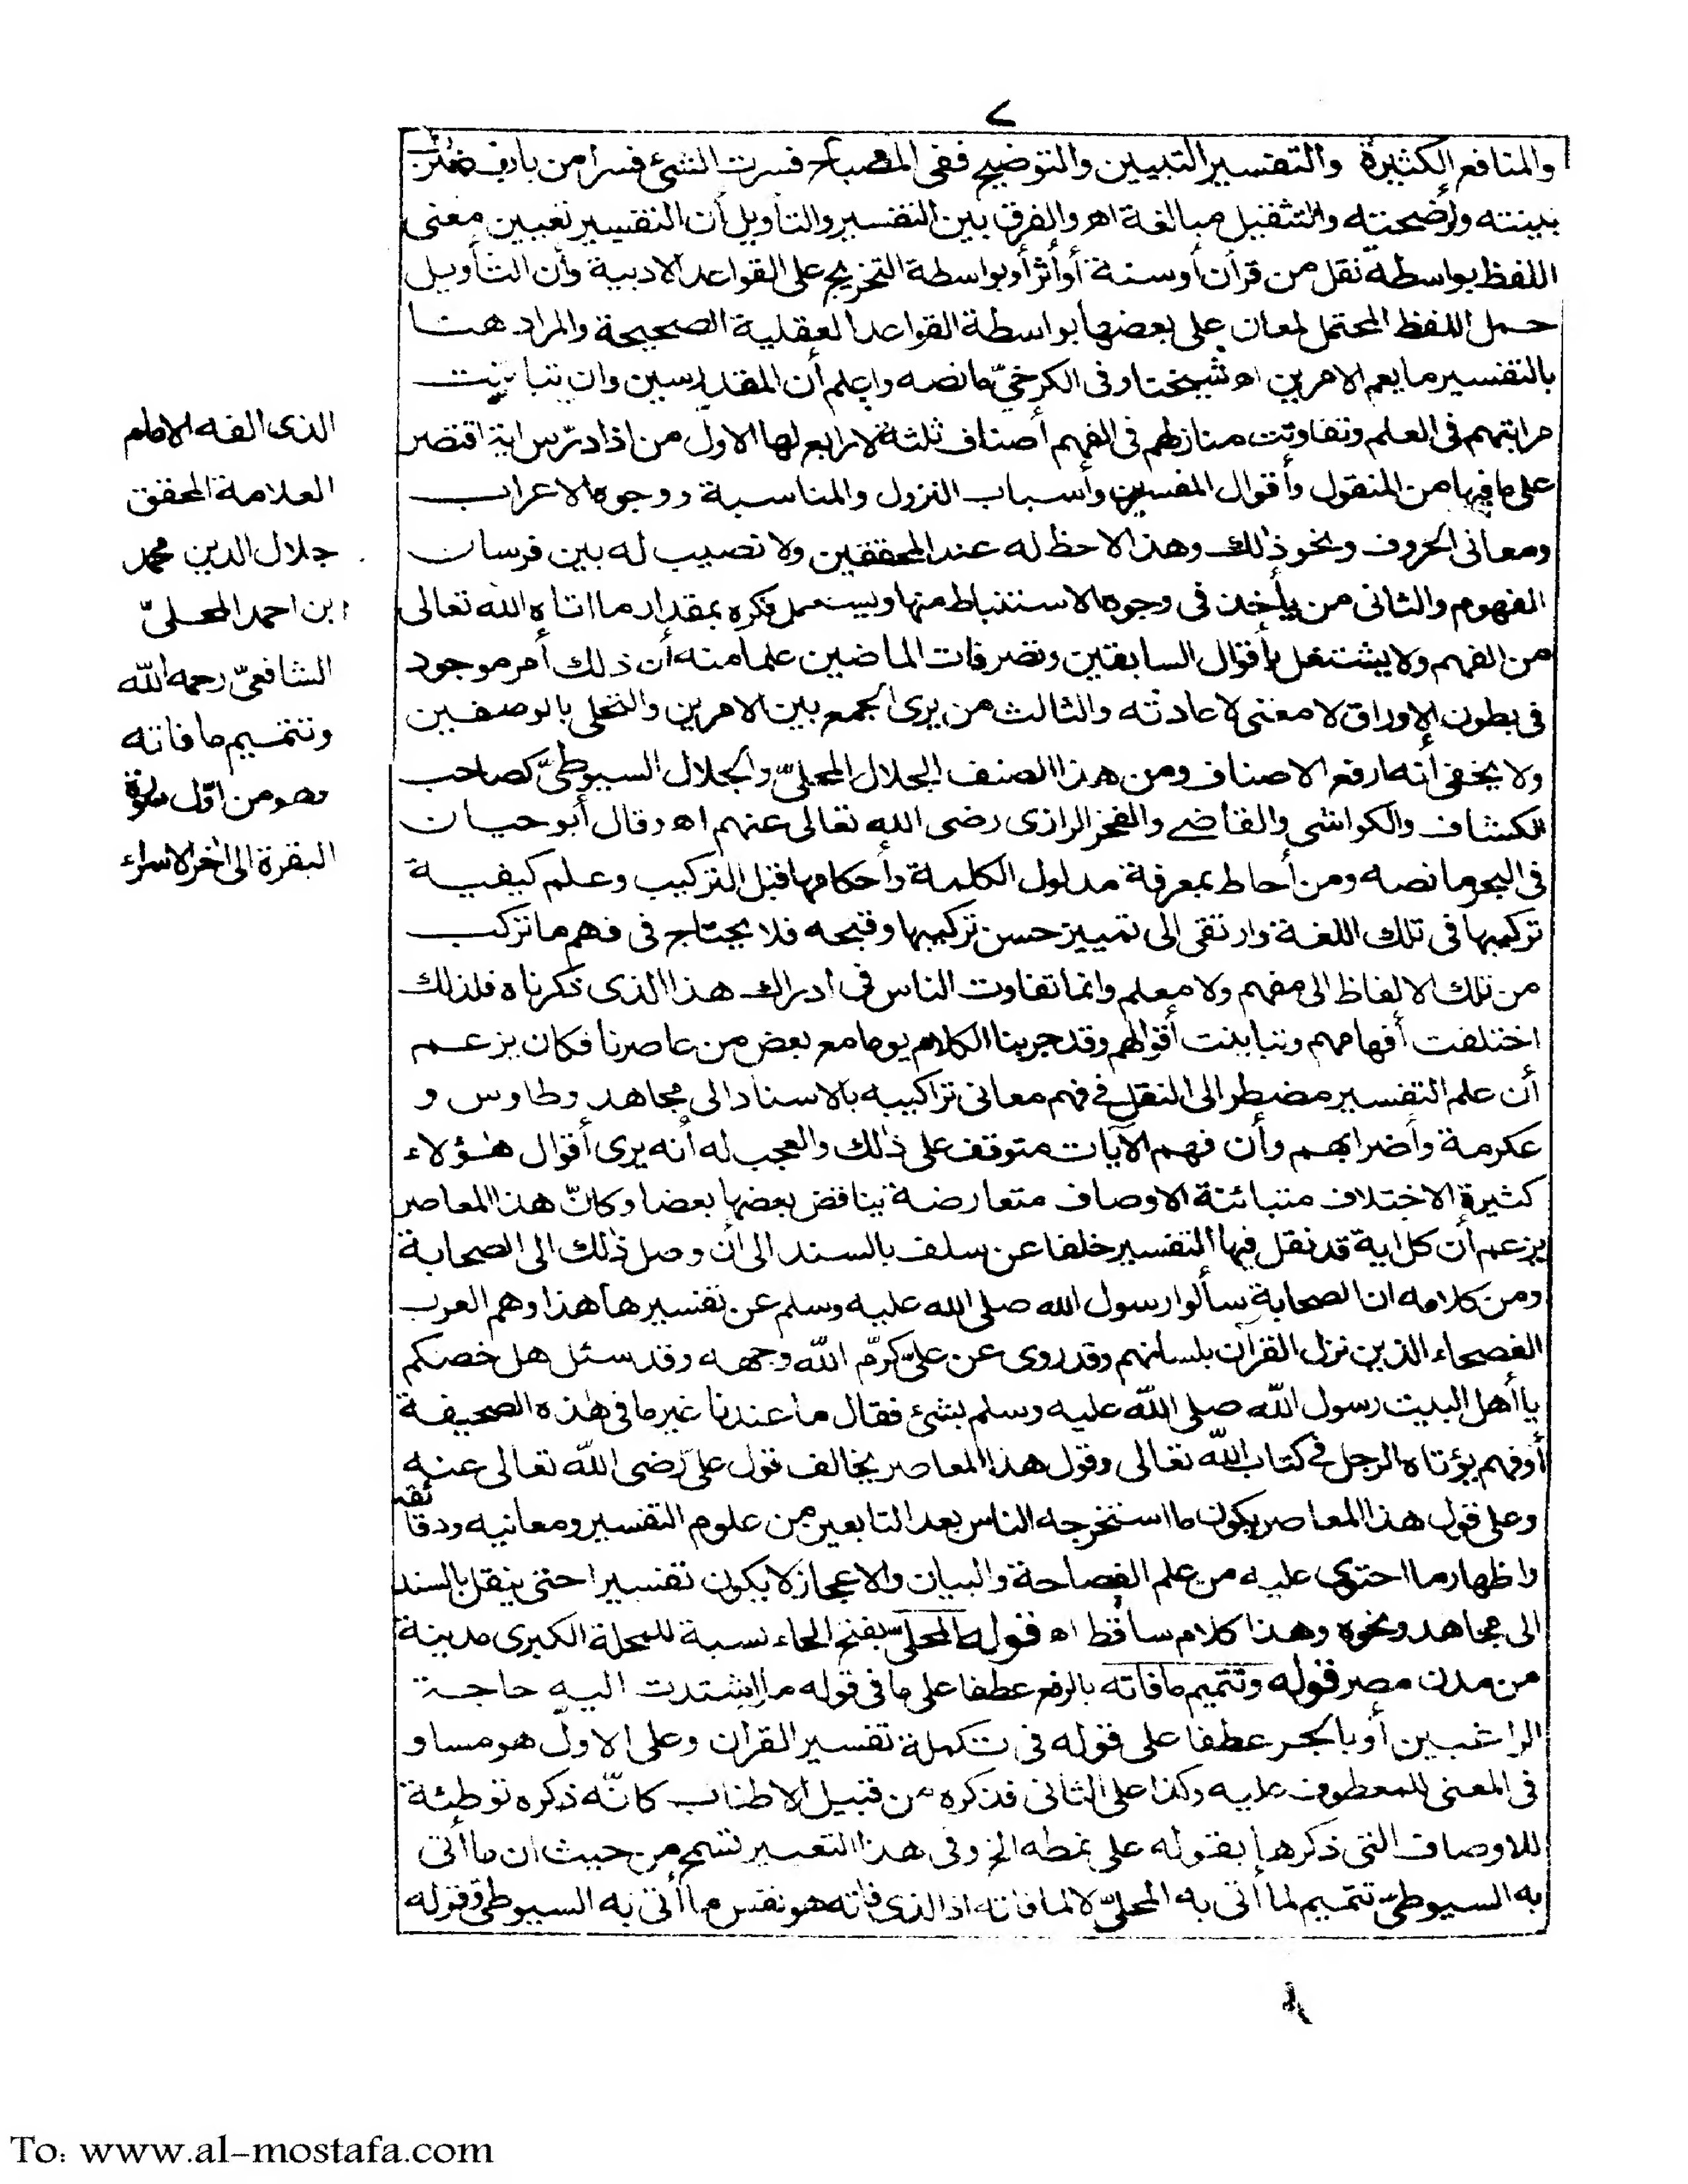 والمنافع الكثيرة والتفسير التبيين والتوضيح ففى المصباح فسرت الشئ فسرا من باب ضرب
بينته وأوضحته والتثقيل مبالغة اه والفرق بين التفسير والتأويل أن التفسير تعيين معنى
اللفظ بواسطة نقل من قرآن أو سنة أو أثر أو بواسطة التخريج على القواعد الادبية وأن التأويل
حمل اللفظ المحتمل لمعان على بعضها بواسطة القواعد العقلية الصحيحة والمراد هنا
بالتفسير ما يعم الامرين اه شيخنا وفى الكرخىّ ما نصه واعلم أن المدرسين وان تباينت
مراتبهم فى العلم وتفاوتت منازلهم فى الفهم أصناف ثلثة لا رابع لها الاول من اذا درّس اية اقتصر
على ما فيها من المنقول وأقوال المفسرين وأسباب النزول والمناسبة ووجوه الاعراب
ومعانى الحروف ونحو ذلك وهذا لاحظ له عند المحققين ولا نصيب له بين فرسان
الفهوم والثانى من يأخذ فى وجوه الاستنباط منها ويستعمل فكره بمقدار ما اتاه الله تعالى
من الفهم ولا يشتغل بأقوال السابقين وتصرفات الماضين علما منه أن ذلك أمر موجود
فى بطون الاوراق لا معنى لاعادته والثالث من يرى الجمع بين الامرين والتحلى بالوصفين
ولا يخفى أنه ارفع الاصناف ومن هذا الصنف الجلال المحلىّ والجلال السيوطىّ كصاحب
الكشاف والكواشى والقاضى والفخر الرازى رضى الله تعالى عنهم اه وقال أبو حيان
فى البحر ما نصه ومن أحاط بمعرفة مدلول الكلمة وأحكامها قبل التركيب وعلم كيفية
تركيبها فى تلك اللغة وارتقى الى تمييز حسن تركيبها وقبحه فلا يحتاج فى فهم ما تركب
من تلك الالفاظ الى مفهم ولا معلم وانما تفاوت الناس فى ادراك هذا الذى ذكرناه فلذلك
اختلفت أفهامهم وتباينت أقوالهم وقد جرينا الكلام يوما مع بعض من عاصرنا فكان يزعم
أن علم التفسير مضطر الى النقل فى فهم معانى تراكيبه بالاسناد الى مجاهد وطاوس و
عكرمة وأضرابهم وأن فهم الآيات متوقف على ذلك والعجب له أنه يرى أقوال هؤلاء
كثيرة الاختلاف متبائنة الاوصاف متعارضة يناقض بعضها بعضا وكانّ هذا المعاصر
يزعم أن كل اية قد نقل فيها التفسير خلفا عن سلف بالسند الى أن وصل ذلك الى الصحابة
ومن كلامه ان الصحابة سألوا رسول الله صلى الله عليه وسلم عن تفسيرها هذا وهم العرب
الفصحاء الذين نزل القرآن بلسانهم وقد روى عن علىّ كرّم الله وجهه وقد سئل هل خصكم
يا أهل البيت رسول الله صلى الله عليه وسلم بشئ فقال ما عندنا غير ما فى هذه الصحيفة
أو فهم يؤتاه الرجل فى كتاب الله تعالى وقول هذا المعاصر يخالف قول علىّ رضى الله تعالى عنه
وعلى قول هذا المعاصر يكون ما استخرجه الناس بعد التابعين من علوم التفسير ومعانيه ودقائقه
واظهار ما احتوى عليه من علم الفصاحة والبيان والاعجاز لا يكون تفسيرا حتى ينقل بالسند
الى مجاهد ونحوه وهذا كلام ساقط اه قوله المحلىّ بفتح الحاء نسبة للمحلة الكبرى مدينة
من مدن مصر قوله وتتميم ما فاته بالرفع عطفا على ما فى قوله ما اشتدت اليه حاجة
الراغبين أو بالجر عطفا على قوله فى تكملة تفسير القرآن وعلى الاول هو مساو
فى المعنى للمعطوف عليه وكذا على الثانى فذكره من قبيل الاطناب كانّه ذكره توطئة
للاوصاف التى ذكرها بقوله على نمطه الخ وفى هذا التعبير تسمح من حيث ان ما أتى
به السيوطىّ تتميم لما أتى به المحلىّ لا لما فاته اذ الذى فاته هو نفس ما أتى به السيوطى وقوله
الذى الفه الامام
العلامة المحقق
جلال الدين محمد
ابن احمد المحلىّ
الشافعىّ رحمه الله
وتتميم ما فاته
وهو من اوّل سورة
البقرة الى اخر الاسراء
To: www.al-mostafa.com